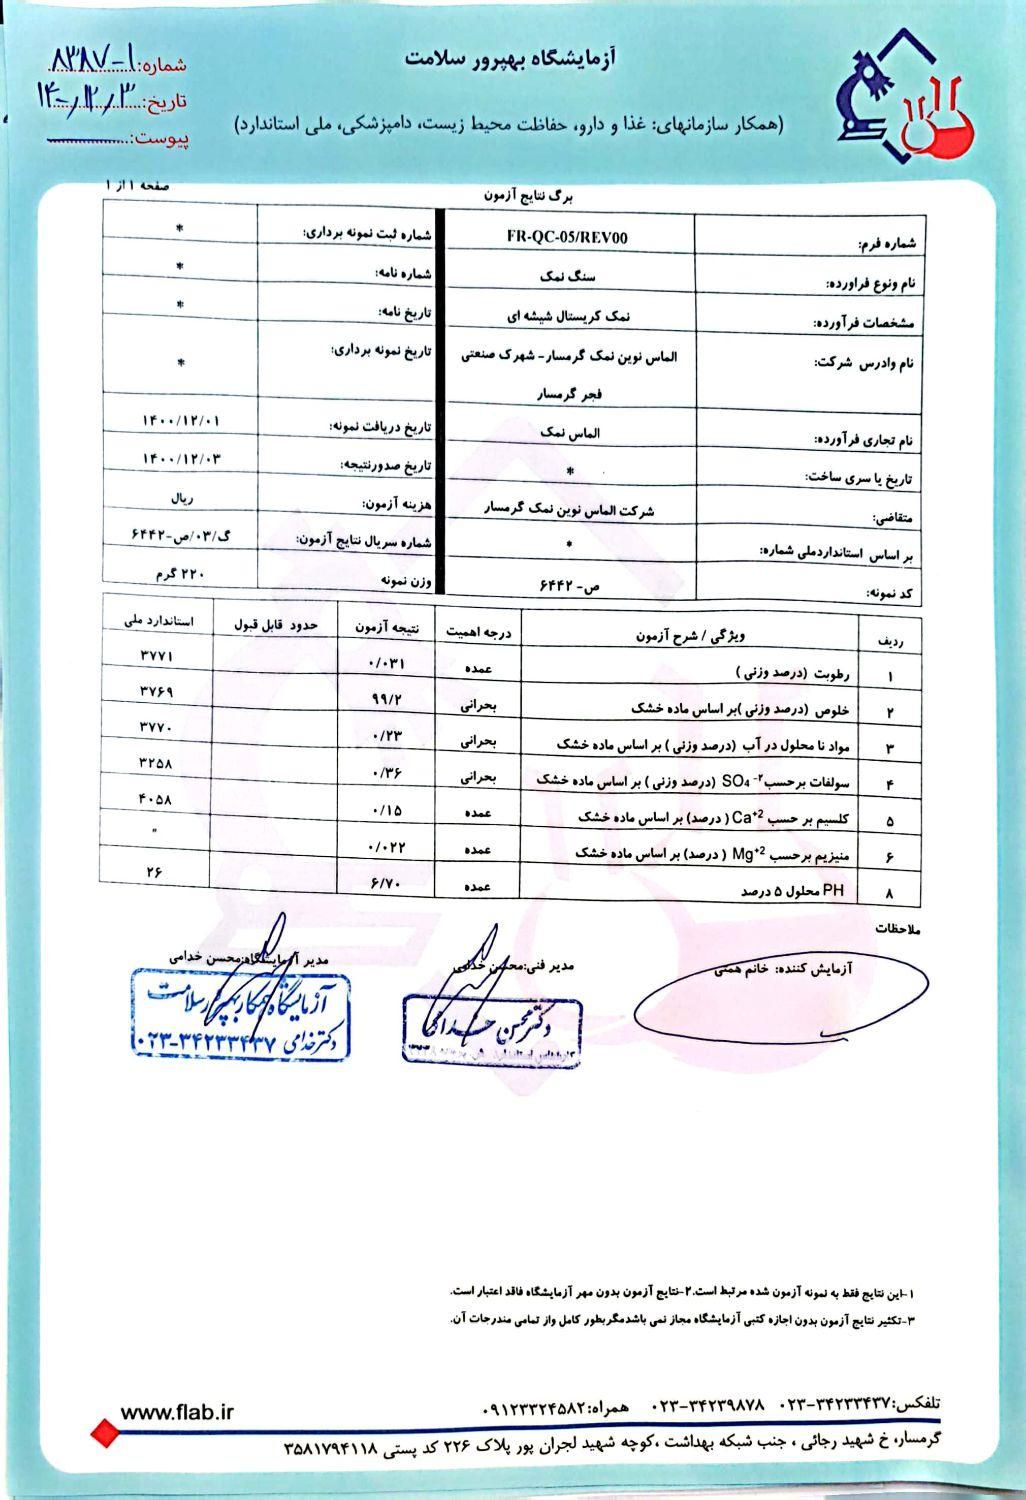 آزمایشگاه بهپرور سلامت
(همکار سازمانهای: غذا و دارو، حفاظت محیط زیست، دامپزشکی، ملی استاندارد)
شماره: ۸۳۸۷-۱
تاریخ: ۱۴۰۰/۱۲/۳
پیوست:
برگ نتایج آزمون
صفحه ۱ از ۱
شماره فرم: FR-QC-05/REV00 شماره ثبت نمونه برداری: *
نام ونوع فراورده: سنگ نمک شماره نامه: *
مشخصات فرآورده: نمک کریستال شیشه ای تاریخ نامه: *
نام وادرس شرکت: الماس نوین نمک گرمسار- شهرک صنعتی تاریخ نمونه برداری: *
فجر گرمسار
نام تجاری فرآورده: الماس نمک تاریخ دریافت نمونه: ۱۴۰۰/۱۲/۰۱
تاریخ یا سری ساخت: * تاریخ صدورنتیجه: ۱۴۰۰/۱۲/۰۳
متقاضی: شرکت الماس نوین نمک گرمسار هزینه آزمون: ریال
بر اساس استانداردملی شماره: * شماره سریال نتایج آزمون: گ/۰۳/ص-۶۴۴۲
کد نمونه: ص- ۶۴۴۲ وزن نمونه ۲۲۰ گرم
ردیف ویژگی / شرح آزمون درجه اهمیت نتیجه آزمون حدود قابل قبول استاندارد ملی
۱ رطوبت (درصد وزنی) عمده ۰/۰۳۱ ۳۷۷۱
۲ خلوص (درصد وزنی )بر اساس ماده خشک بحرانی ۹۹/۲ ۳۷۶۹
۳ مواد نا محلول در آب (درصد وزنی ) بر اساس ماده خشک بحرانی ۰/۲۳ ۳۷۷۰
۴ سولفات برحسب SO₄⁻² (درصد وزنی ) بر اساس ماده خشک بحرانی ۰/۳۶ ۳۲۵۸
۵ کلسیم بر حسب Ca⁺² ( درصد) بر اساس ماده خشک عمده ۰/۱۵ ۴۰۵۸
۶ منیزیم برحسب Mg⁺² ( درصد) بر اساس ماده خشک عمده ۰/۰۲۲ "
۸ PH محلول ۵ درصد عمده ۶/۷۰ ۲۶
ملاحظات
آزمایش کننده: خانم همتی
مدیر فنی:محسن خدامی
مدیر آزمایشگاه:محسن خدامی
دکتر محسن خدامی
کارشناس استاندارد
آزمایشگاه همکار بهپرور سلامت
دکتر خدامی ۰۲۳-۳۴۲۳۳۴۳۷
۱-این نتایج فقط به نمونه آزمون شده مرتبط است.۲-نتایج آزمون بدون مهر آزمایشگاه فاقد اعتبار است.
۳-تکثیر نتایج آزمون بدون اجازه کتبی آزمایشگاه مجاز نمی باشدمگربطور کامل واز تمامی مندرجات آن.
تلفکس:۰۲۳-۳۴۲۳۳۴۳۷ ۰۲۳-۳۴۲۳۹۸۷۸ همراه:۰۹۱۲۳۳۲۴۵۸۲
www.flab.ir
گرمسار، خ شهید رجائی ، جنب شبکه بهداشت ،کوچه شهید لجران پور پلاک ۲۲۶ کد پستی ۳۵۸۱۷۹۴۱۱۸